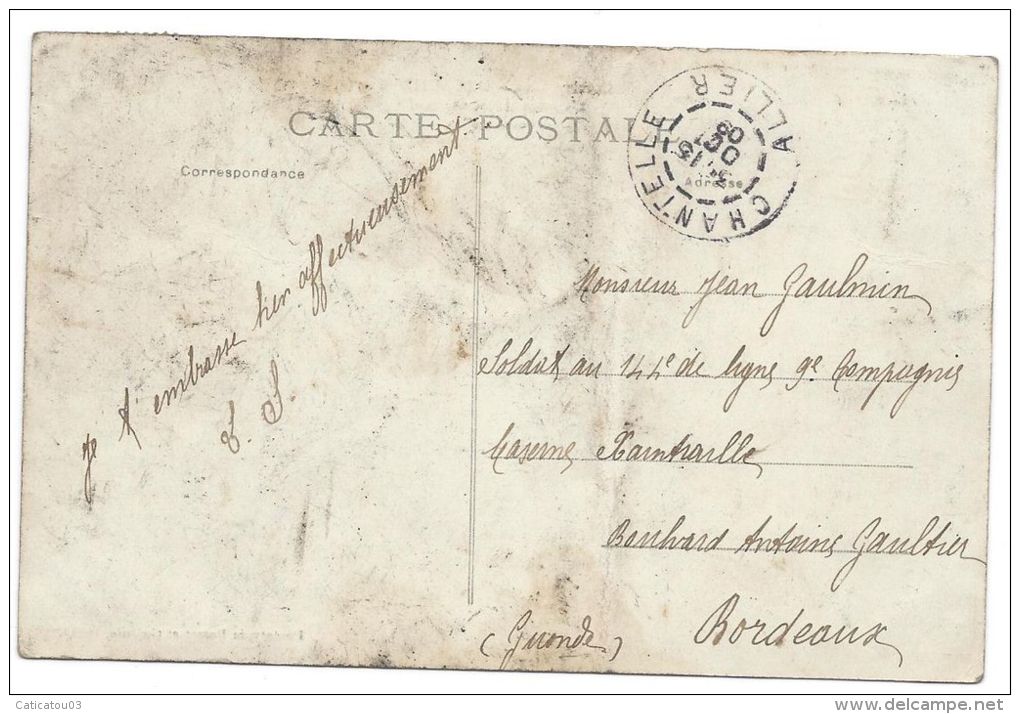 CARTE POSTALE
Correspondance
Adresse
CHANTELLE
ALLIER
15
OCT
08
je t'embrasse bien affectueusement
S.
Monsieur Jean Gaulmin
Soldat au 144e de ligne 9e Compagnie
Caserne Xaintraille
Boulvard Antoine Gaultier
Bordeaux
(Gironde)
Caticatou03
www.delcampe.net